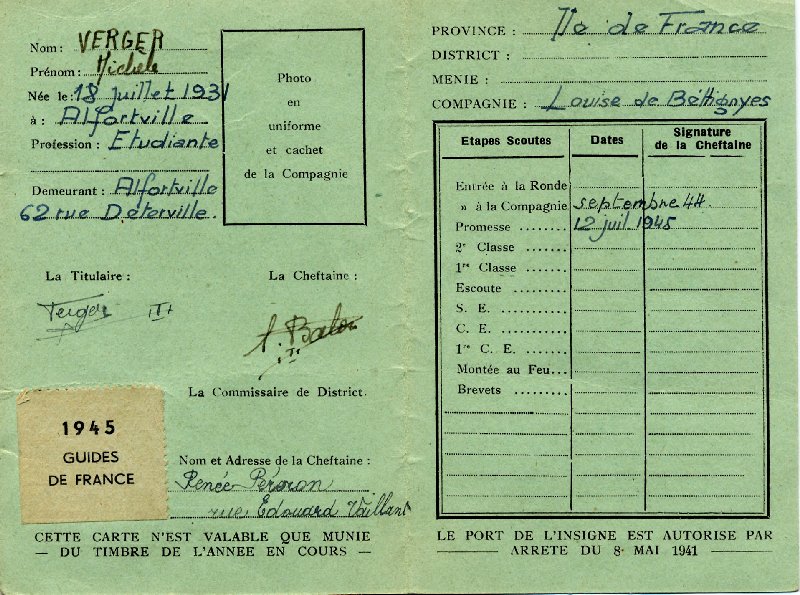 Nom : VERGER
Prénom : Michèle
Née le : 18 juillet 1931
à : Alfortville
Profession : Etudiante
Demeurant : Alfortville
62 rue Déterville.
Photo
en
uniforme
et cachet
de la Compagnie
La Titulaire :
La Cheftaine :
Verger
La Commissaire de District.
1945
GUIDES
DE FRANCE
Nom et Adresse de la Cheftaine :
Renée
rue Edouard Vaillant
CETTE CARTE N'EST VALABLE QUE MUNIE
— DU TIMBRE DE L'ANNEE EN COURS —
PROVINCE : Ile de France
DISTRICT :
MENIE :
COMPAGNIE : Louise de Bettignyes
Etapes Scoutes Dates Signature de la Cheftaine
Entrée à la Ronde
» à la Compagnie septembre 44
Promesse ........ 12 juil 1945
2e Classe ........
1re Classe ........
Escoute ........
S. E. ..........
C. E. ..........
1re C. E. .......
Montée au Feu...
Brevets ........
LE PORT DE L'INSIGNE EST AUTORISE PAR
— ARRETE DU 8 MAI 1941 —